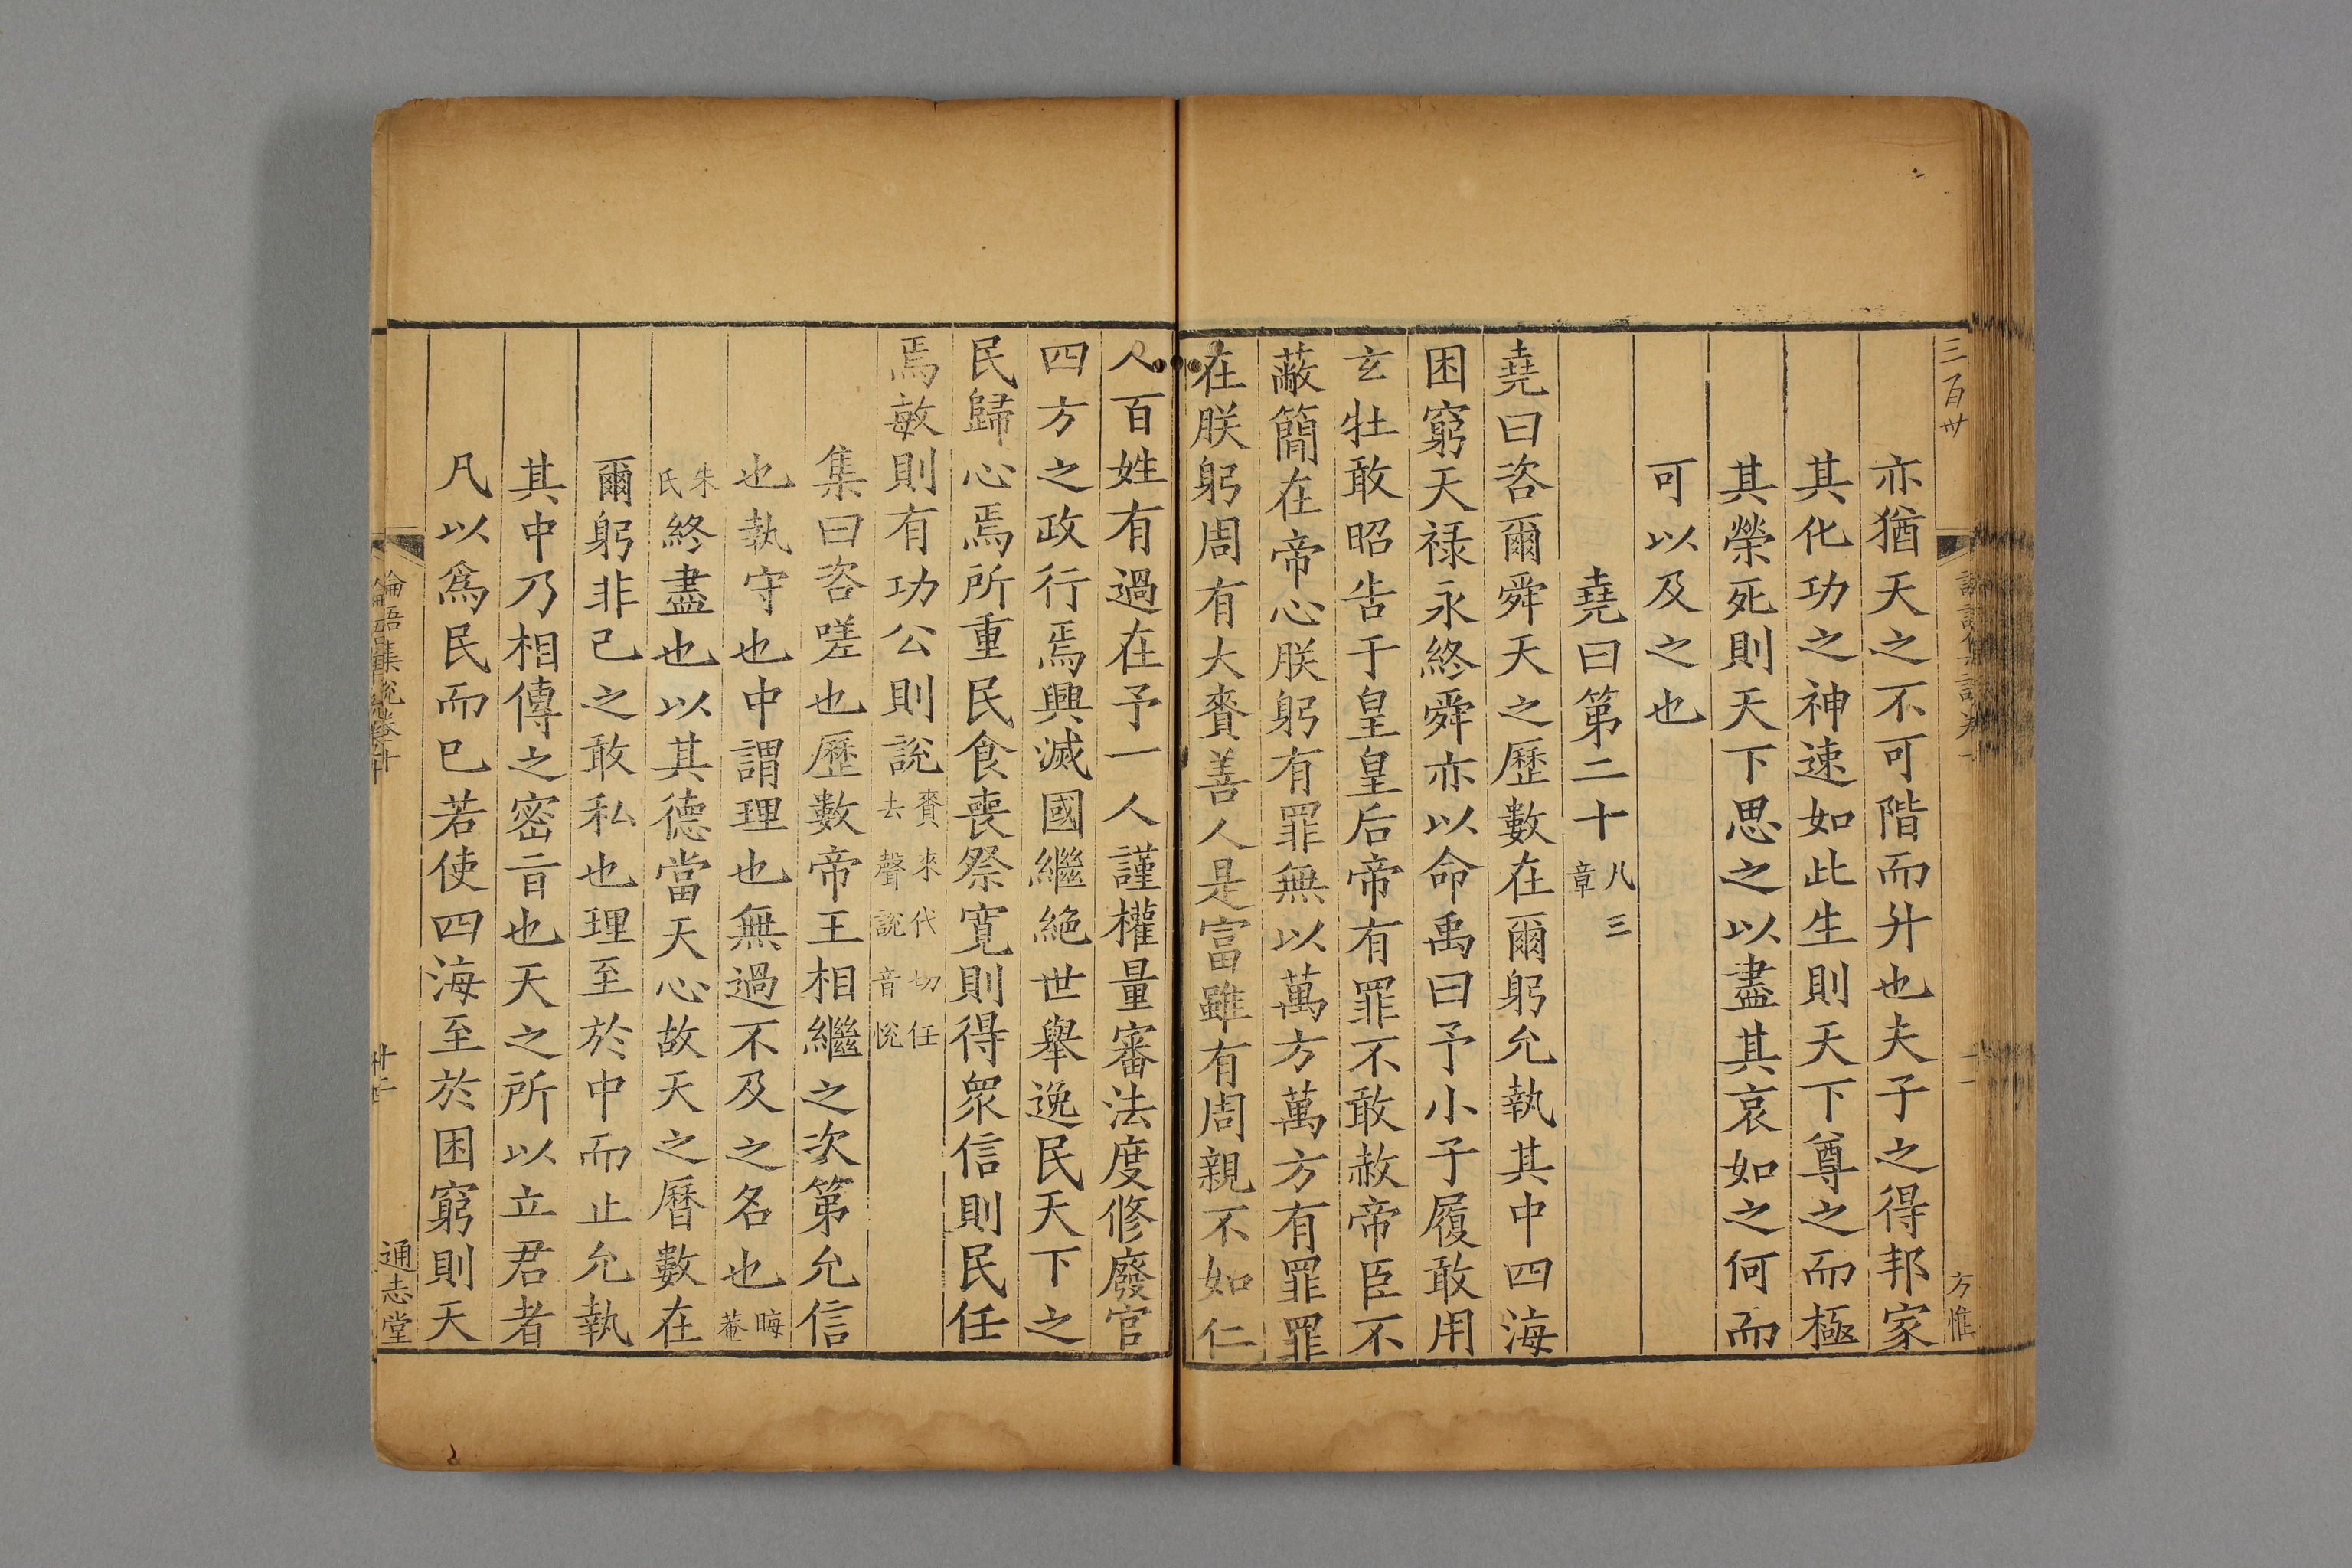 三百卅
方惟
亦猶天之不可階而升也夫子之得邦家
其化功之神速如此生則天下尊之而極
其榮死則天下思之以盡其哀如之何而
可以及之也
堯曰第二十 八三章
堯曰咨爾舜天之歷數在爾躬允執其中四海
困窮天禄永終舜亦以命禹曰予小子履敢用
玄牡敢昭告于皇皇后帝有罪不敢赦帝臣不
蔽簡在帝心朕躬有罪無以萬方萬方有罪罪
在朕躬周有大賚善人是富雖有周親不如仁
人百姓有過在予一人謹權量審法度修廢官
四方之政行焉興滅國繼絶世舉逸民天下之
民歸心焉所重民食喪祭寛則得眾信則民任
焉敏則有功公則説 賚來代切任去聲説音悅
集曰咨嗟也歷數帝王相繼之次第允信
也執守也中謂理也無過不及之名也 晦菴
朱氏 終盡也以其德當天心故天之曆數在
爾躬非己之敢私也理至於中而止允執
其中乃相傳之密旨也天之所以立君者
凡以爲民而已若使四海至於困窮則天
論語集説卷十
通志堂